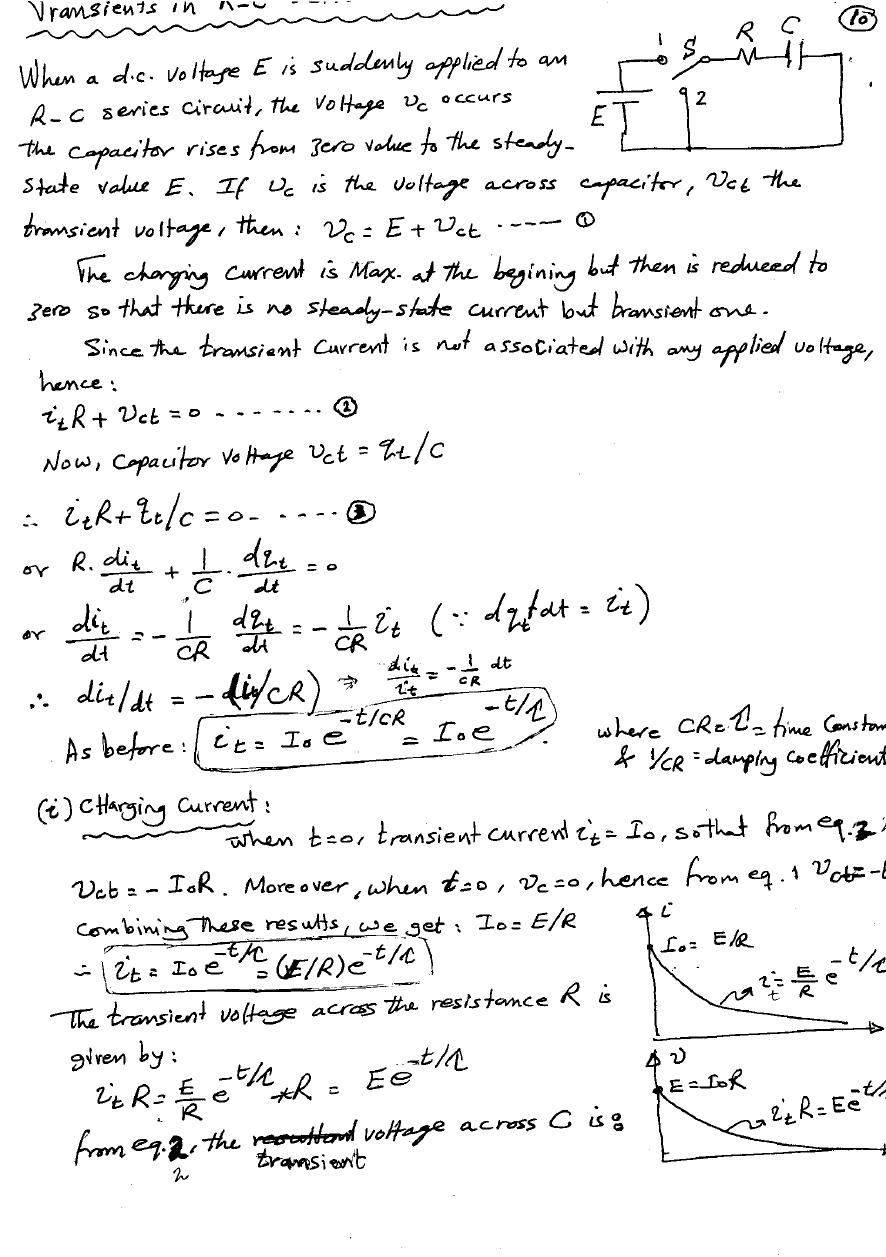 Transients in R-C
10
When a d.c. voltage E is suddenly applied to an
R-C series circuit, the voltage υc occurs
the capacitor rises from zero value to the steady-
state value E. If υc is the voltage across capacitor, υct the
transient voltage, then : υc = E + υct ----- ①
1 S R C
E 2
The charging current is Max. at the begining but then is reduced to
zero so that there is no steady-state current but transient one.
Since the transient current is not associated with any applied voltage,
hence :
itR + υct = 0 -------- ②
Now, capacitor voltage υct = qt/C
∴ itR + qt/c = 0 - ---- ③
or R. dit/dt + 1/C . dqt/dt = 0
or dit/dt = - 1/CR dqt/dt = - 1/CR it (∵ dqt/dt = it)
∴ dit/dt = -(it/CR) ⇒ dit/it = - 1/CR dt
As before : it = I₀ e^-t/CR = I₀ e^-t/τ .
where CR = τ = time Constan
& 1/CR = damping coefficient
(i) CHarging Current :
when t=0, transient current it = I₀, so that from eq. 2
υct = - I₀R. Moreover, when t=0, υc=0, hence from eq. 1 υct = -
Combining These results, we get : I₀ = E/R
∴ it = I₀ e^-t/τ = (E/R) e^-t/τ
The transient voltage across the resistance R is
given by :
it R = E/R e^-t/τ *R = E e^-t/τ
from eq. 2, the voltage across C is :
2 transient
i
I₀ = E/R
it = E/R e^-t/τ
υ
E = I₀R
it R = E e^-t/